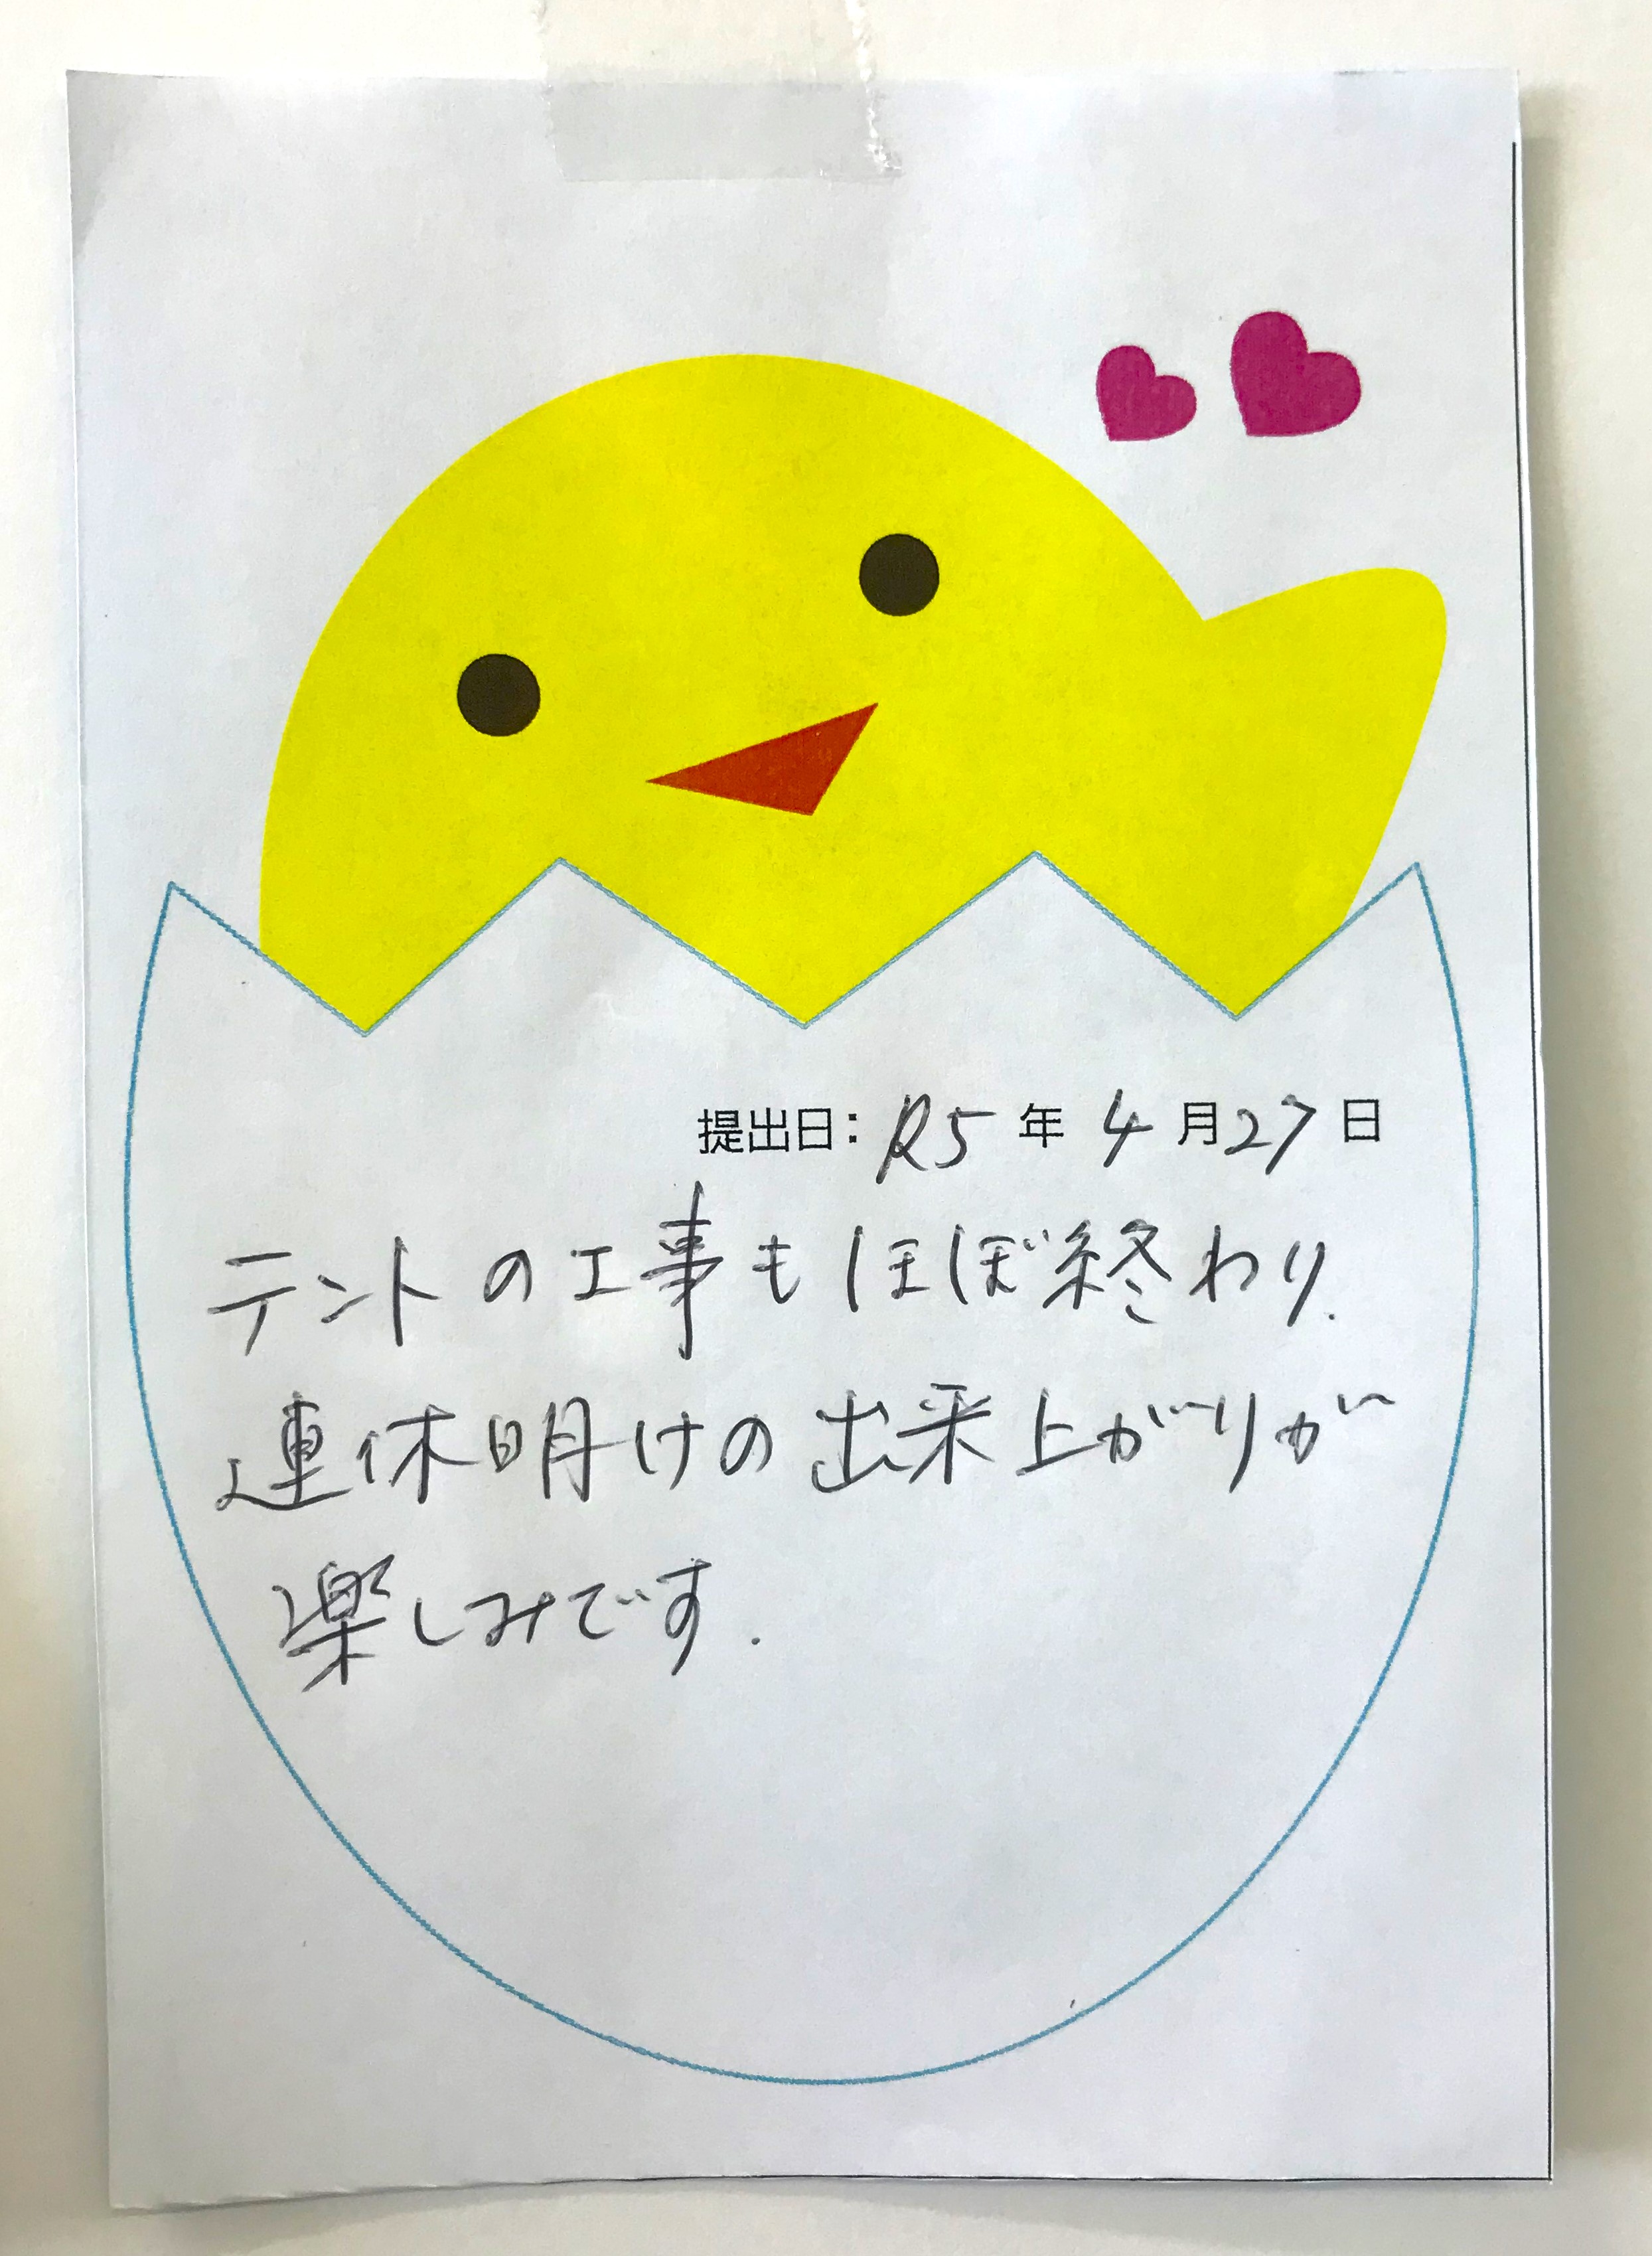 提出日：R5年4月27日
テントの工事もほぼ終わり.
連休明けの出来上がりが
楽しみです.